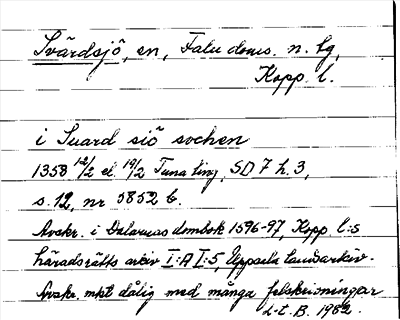 Svärdsjö, sn, Falu doms. n. tg,
Kopp. l.
i Suard siö sochen
1358 12/2 el. 19/2 Tuna ting, SD 7 h. 3,
s. 12, nr 5852 b.
Avskr. i Dalarnas dombok 1596-97, Kopp l:s
häradsrätts arkiv I:A I:5, Uppsala landsarkiv.
Avskr. mkt dålig med många felskrivningar
L-t. B. 1982.